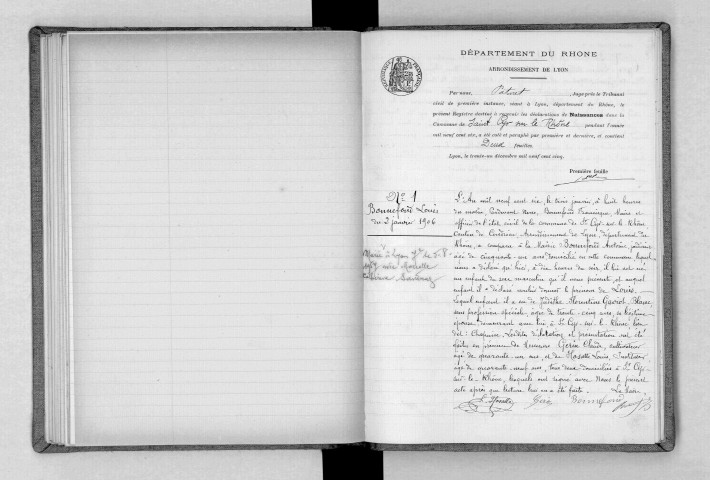 DÉPARTEMENT DU RHÔNE
ARRONDISSEMENT DE LYON
Par nous, juge près le Tribunal
civil de première instance, séant à Lyon, département du Rhône, le
présent Registre destiné à recevoir les déclarations de Naissances dans la
Commune de Saint Cyr sur le Rhône pendant l'année
mil neuf cent six, a été coté et paraphé par première et dernière, et contient
Deux feuilles
Lyon, le trente-un décembre mil neuf cent cinq.
Première feuille
N° 1
Bonnefond Louis
du 3 janvier 1906
Marié à Lyon
L'An mil neuf cent six, le trois janvier, à huit heures
du matin, Pardevant Nous, Bonnefond Francisque, Maire et
officier de l'état civil de la commune de St Cyr-sur-le-Rhône
Canton de Condrieu, Arrondissement de Lyon, département du
Rhône, a comparu à la Mairie Bonnefond Antoine, jardinier
agé de cinquante-un ans domicilié en cette commune, lequel
nous a déclaré qu'hier, à dix heures du soir, il lui est né
un enfant du sexe masculin qu'il nous présente et auquel
enfant il a déclaré vouloir donner le prénom de Louis.
Lequel enfant il a eu de Florentine
sans profession spéciale, agée de trente-cinq ans, sa légitime
épouse, demeurant avec lui à St Cyr-sur-le-Rhône lieu
dit: Chapuise. Lesdites déclaration et présentation ont été
faites en présence de Messieurs Gerin Claude, cultivateur
agé de quarante-un ans, et de Louis, Instituteur
agé de quarante-neuf ans, tous deux domiciliés à St Cyr-
sur-le-Rhône, lesquels ont signé avec Nous le présent
acte après que lecture leur en a été faite.
Gerin Bonnefond